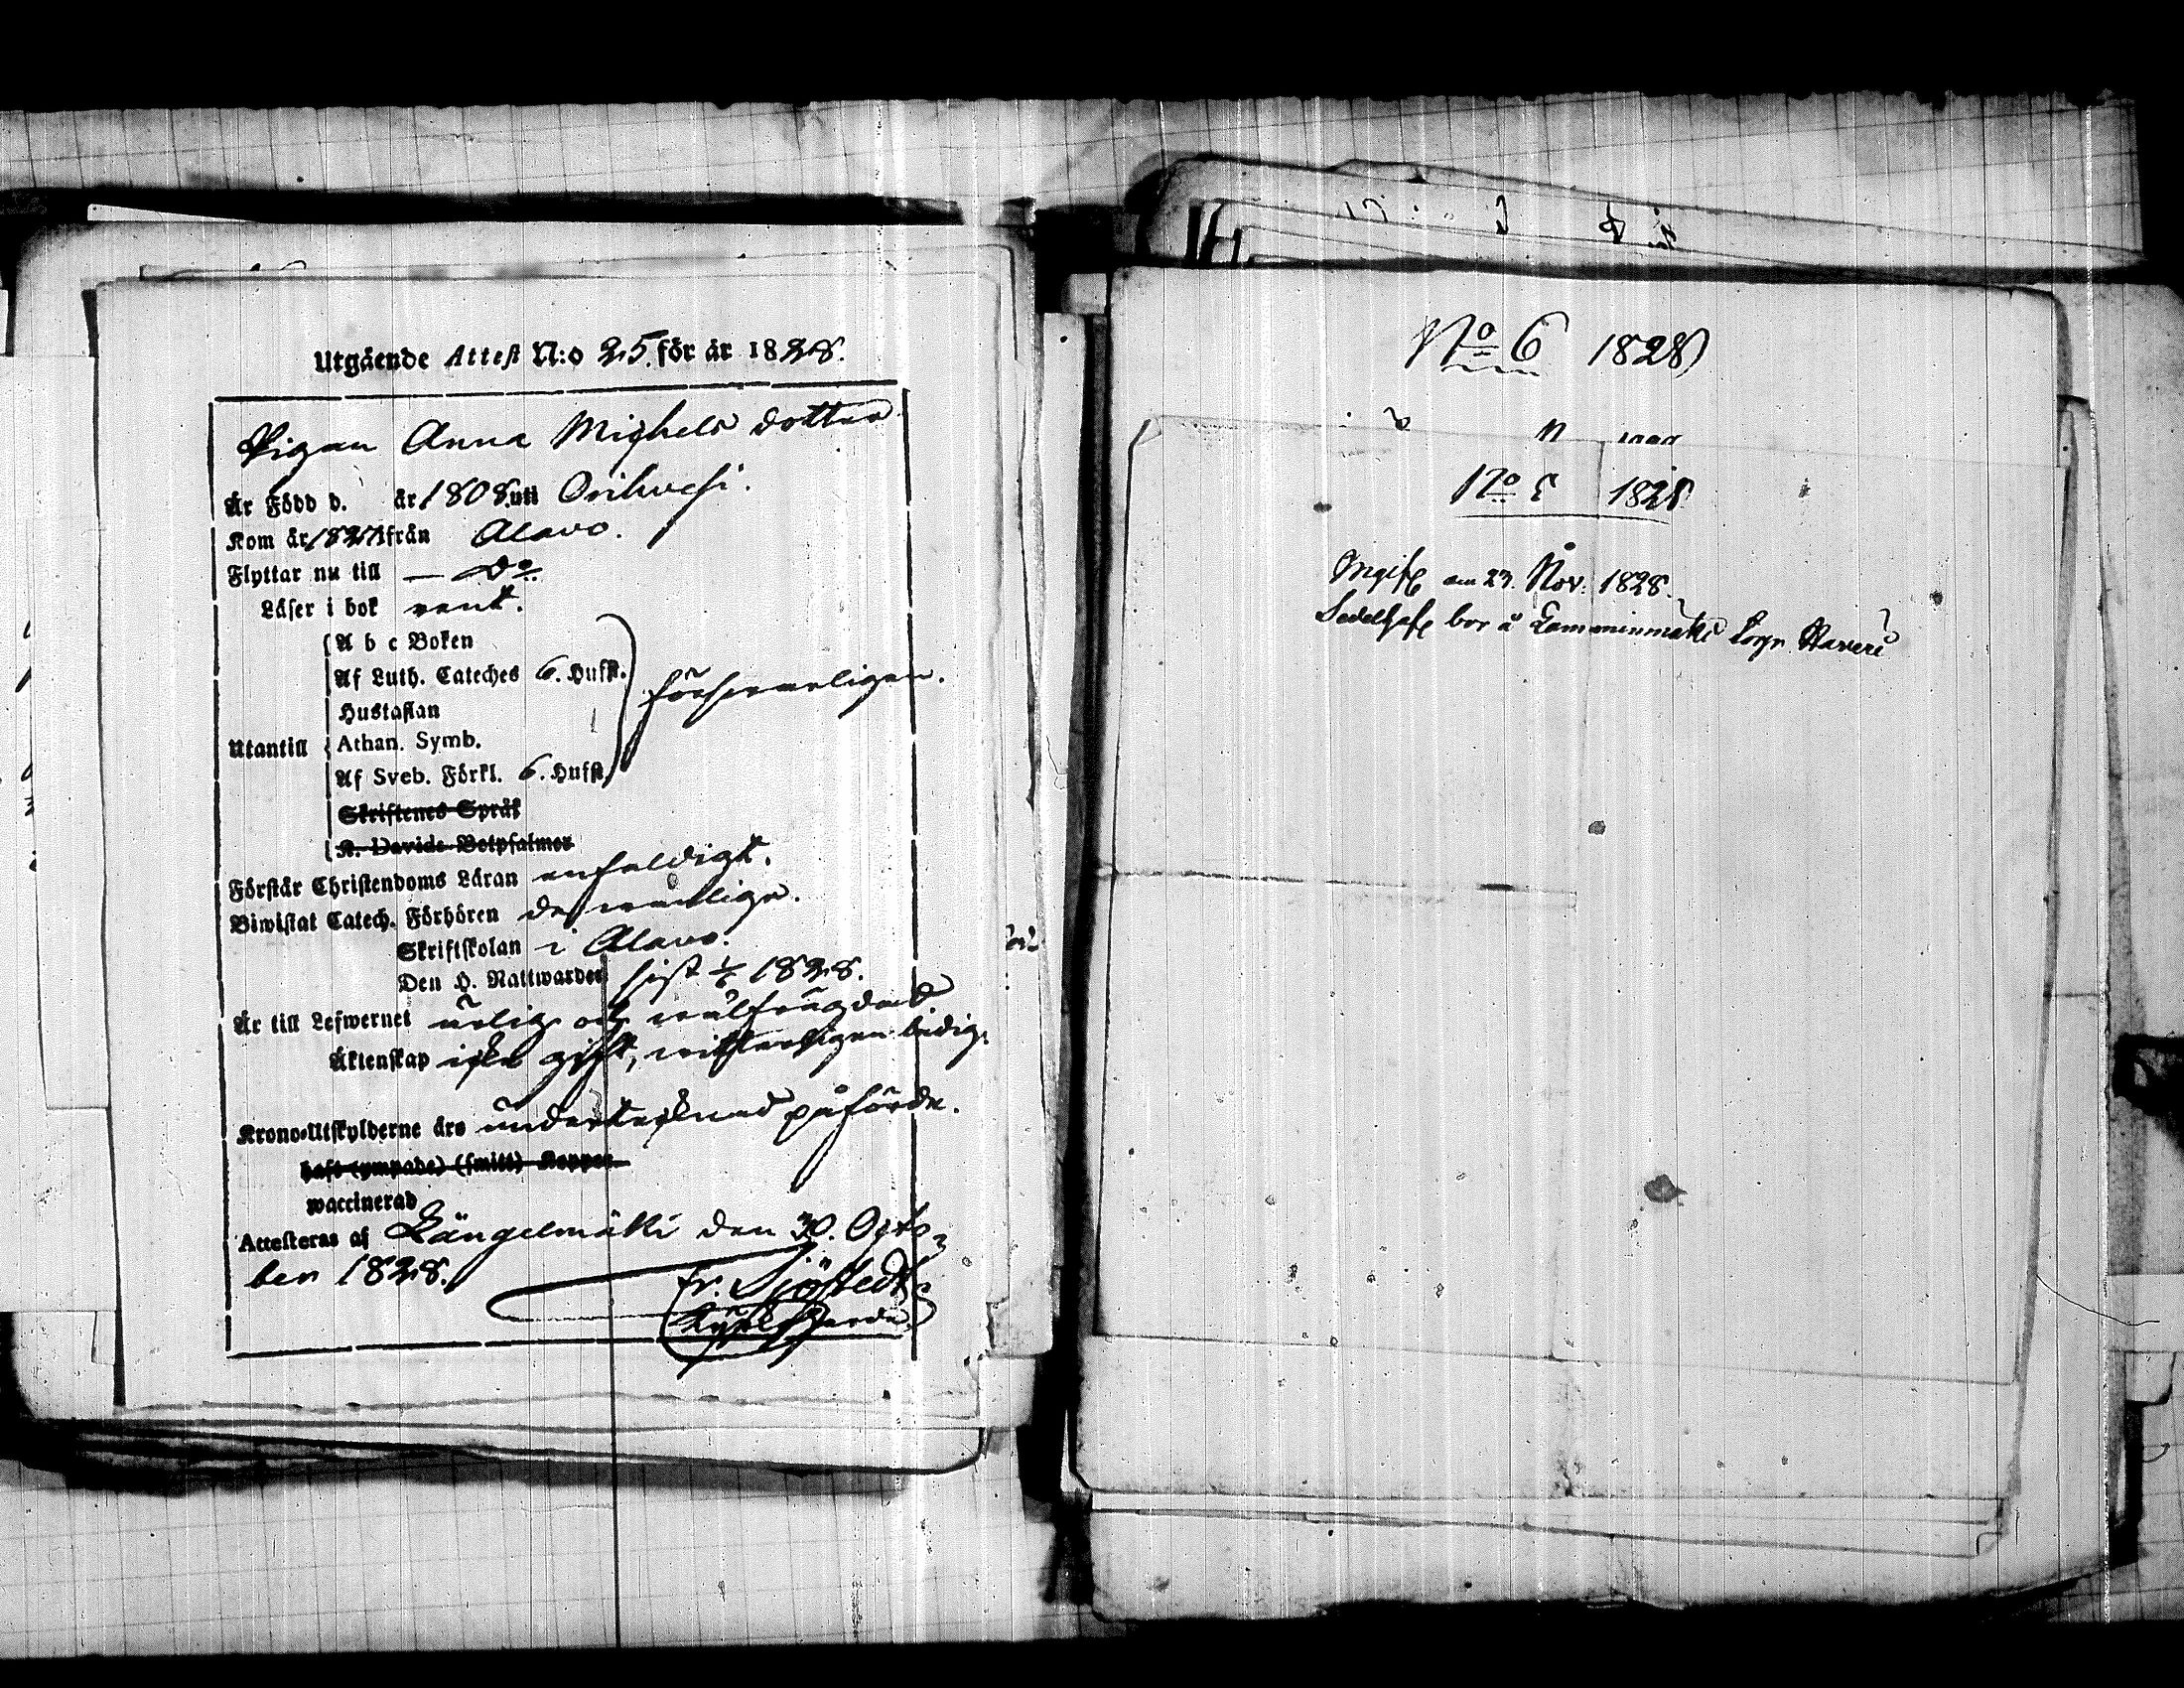 Utgående Attest N:o 25. för år 1828.
Pigan Anna Michels dotter
Är Född d. år 1808. uti Orihvesi.
Kom år 1827 ifrån Alavo.
Flyttar nu till — Do
Läser i bok rent.
A b c Boken
Af Luth. Cateches 6. Hufst.
försvarligen.
Hustaflan
Utantill Athan. Symb.
Af Sveb. Förkl. 6. Hufst.
Skriftenes Språk
K. Davids Botpsalmer
Förstår Christendoms Läran enfaldigt.
Biwistat Catech. Förhören de wanlige.
Skriftskolan i Alavo.
Den H. Nattwarden sist 1828.
Är till Lefwernet ärlig och wälfrägdad
Äktenskap icke gift, witterligen ledig.
Krono-Utskylderne äro undertecknad påförde.
haft (ympade) (smitt) Koppor
waccinerad
Attesteras af Längelmäki den 30. Octo-
ber 1828.
Fr. Sjöstedt
Kyrkoherde
No 6 1828
No 1828
Ingift am 23. Nov. 1828.
bor å